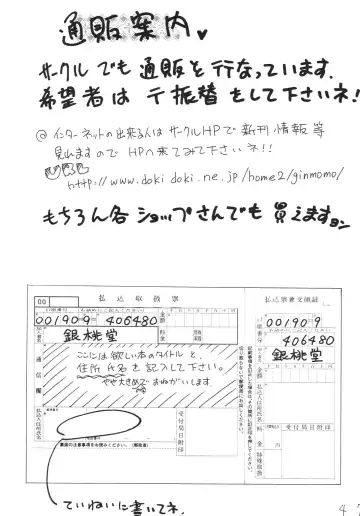 通販案内♥
サークルでも通販を行なっています.
希望者は〒振替をして下さいネ!
@ インターネットの出来る人はサークルHPで新刊情報等
見れますのでHPへ来てみて下さいネ!!
http://www.dokidoki.ne.jp/home2/ginmomo/
もちろん各ショップさんでも買えますョン
00
払込取扱票
00190 9 406480
銀桃堂
通信欄
ここには欲しい本のタイトルと、
住所氏名を記入して下さい。
やや大きめでおねがいします
払込人住所氏名
裏面の注意事項をお読みください。(郵政省)
受付局日附印
払込票兼受領証
00190 9
406480
銀桃堂
金額
料金
特殊取扱
受付局日附印
ていねいに書いてネ.
47